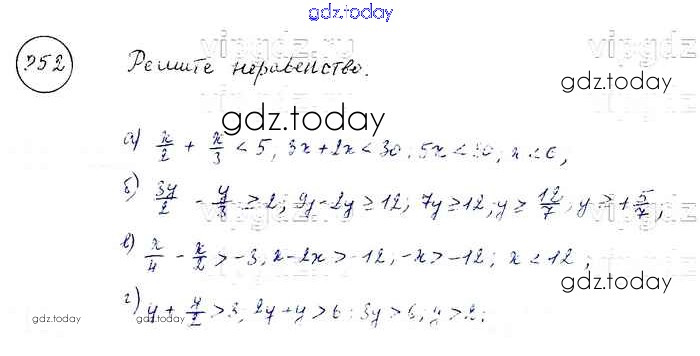 gdz.today
352 Решите неравенство.
vipgdz.ru
gdz.today
gdz.today
а) x/2 + x/3 < 5, 3x + 2x < 30; 5x < 30, x < 6,
б) 3y/2 - y/3 ≥ 2; 9y - 2y ≥ 12; 7y ≥ 12; y ≥ 12/7, y ≥ 1 5/7;
в) x/4 - x/2 > -3, x - 2x > -12, -x > -12; x < 12;
г) y + y/2 > 3; 2y + y > 6; 3y > 6; y > 2;
gdz.today
gdz.today